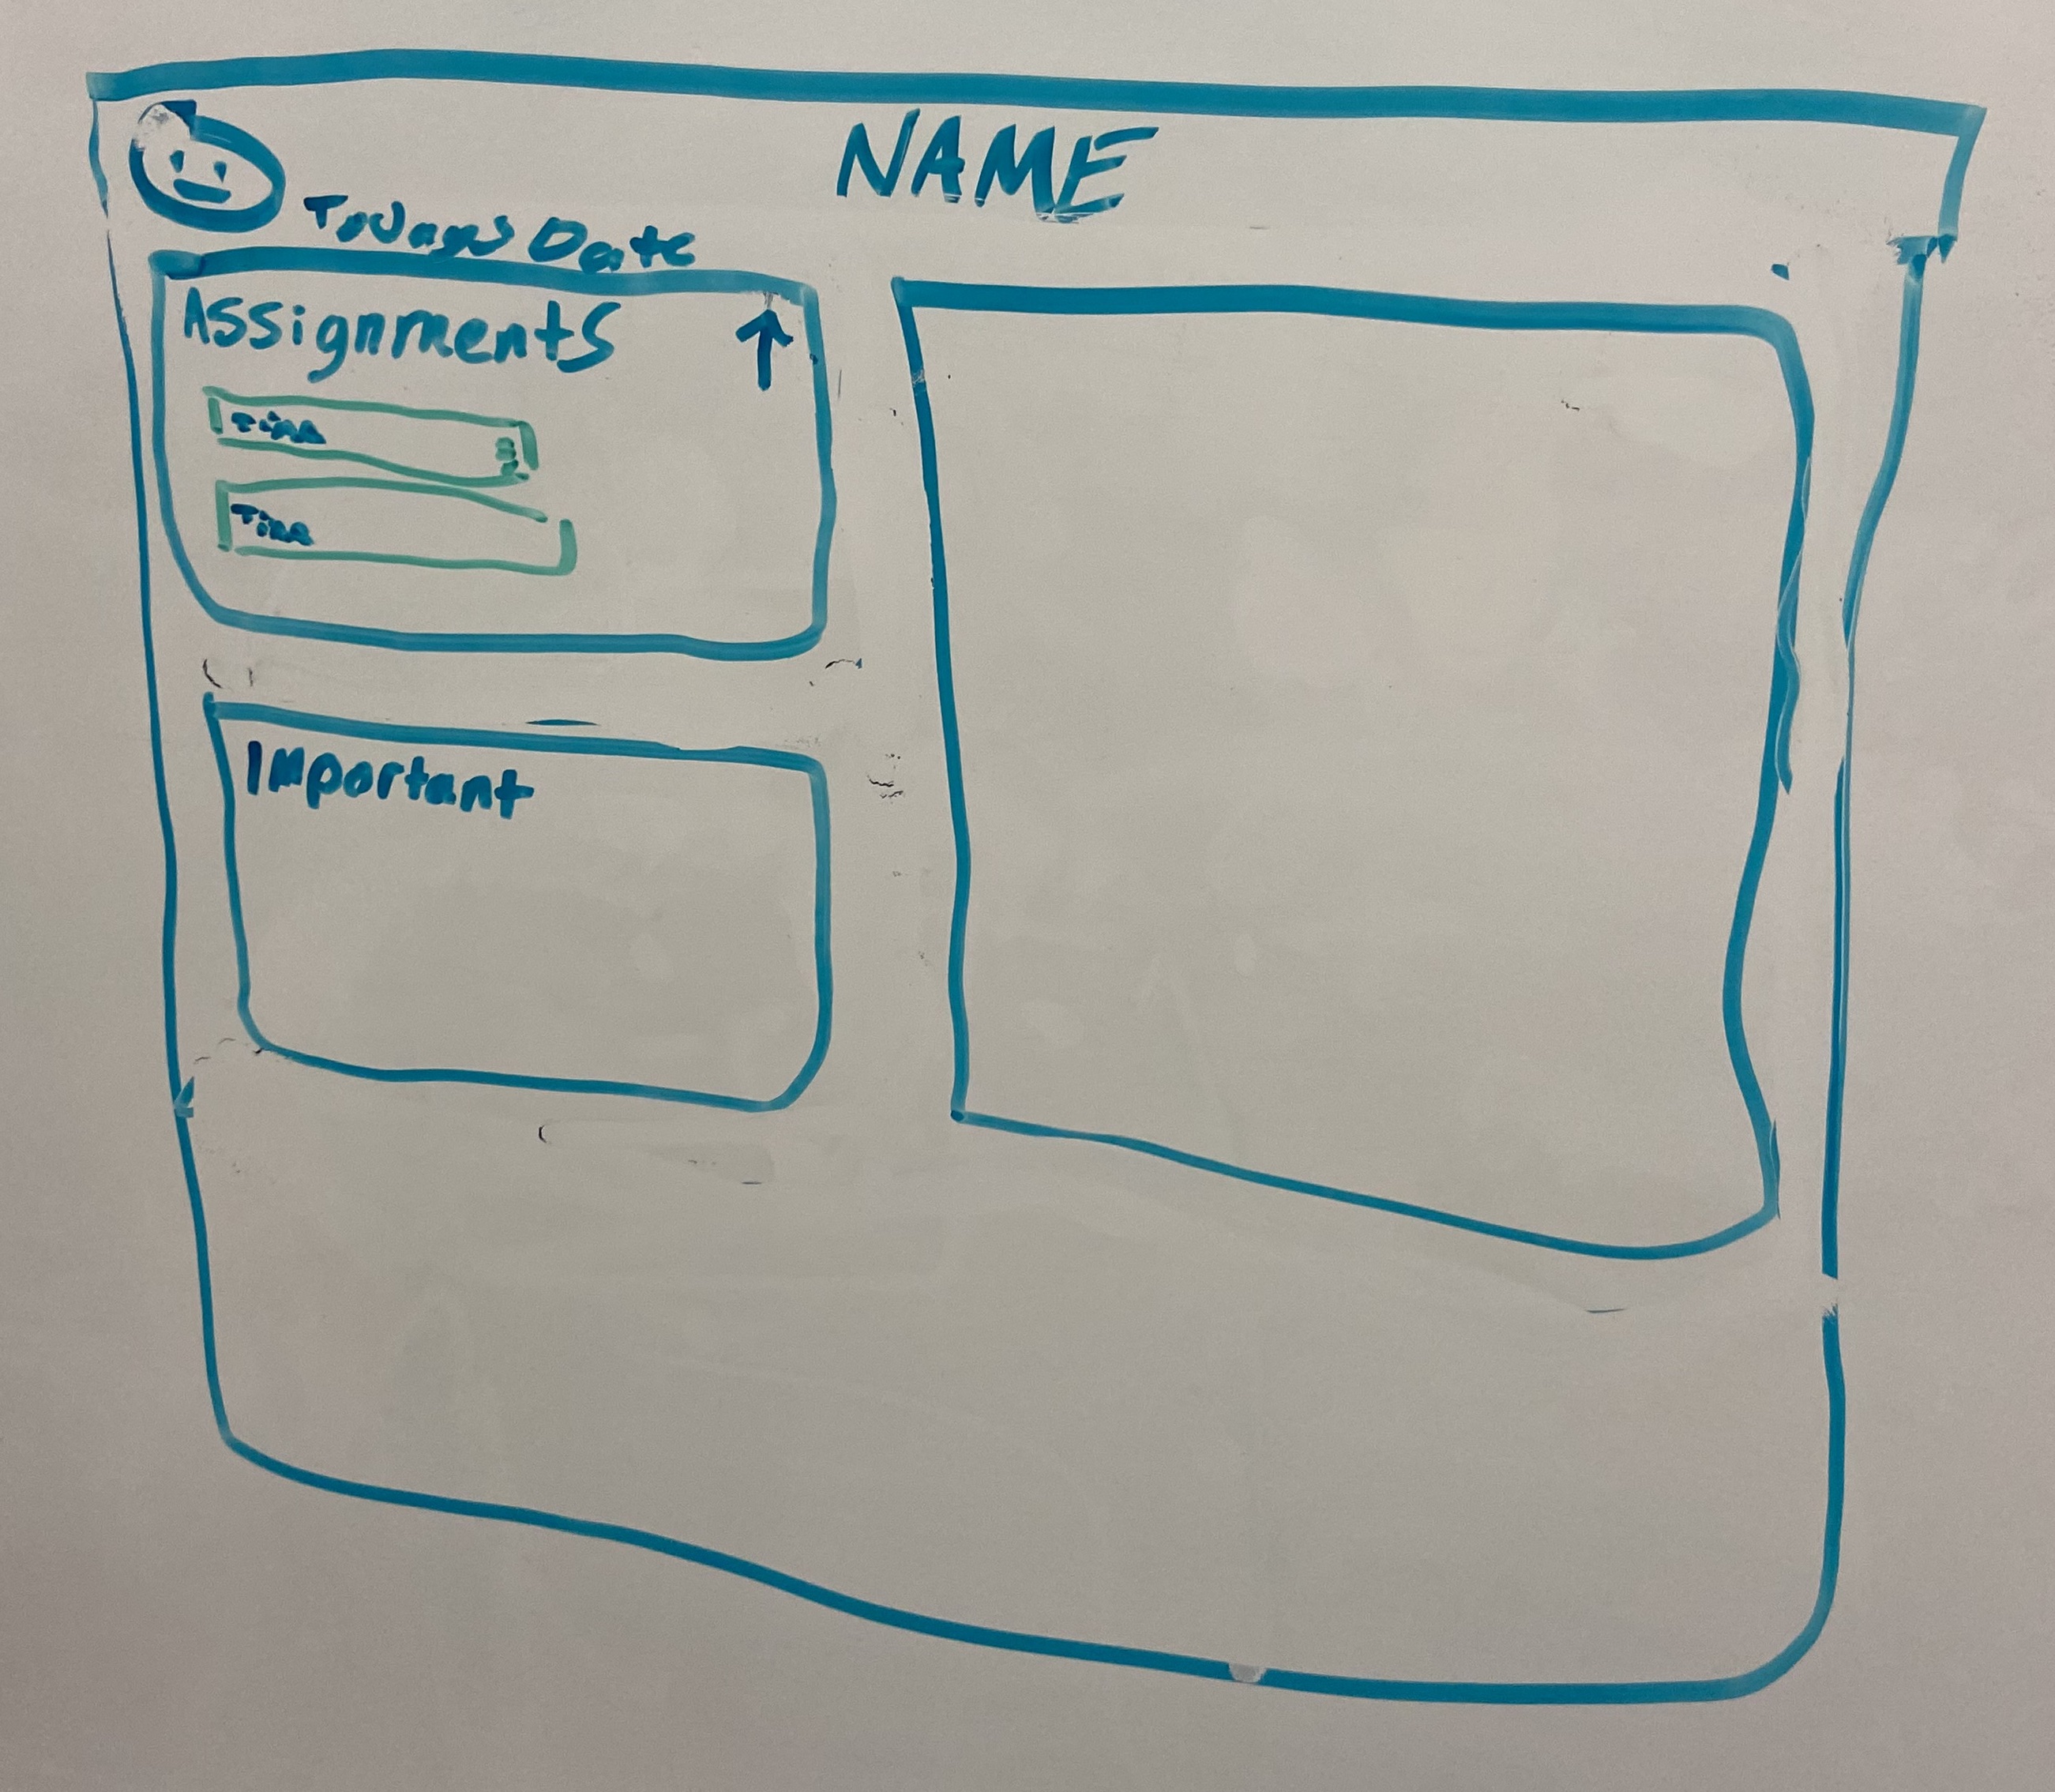 NAME
Todays Date
Assignments
Time
Time
Important